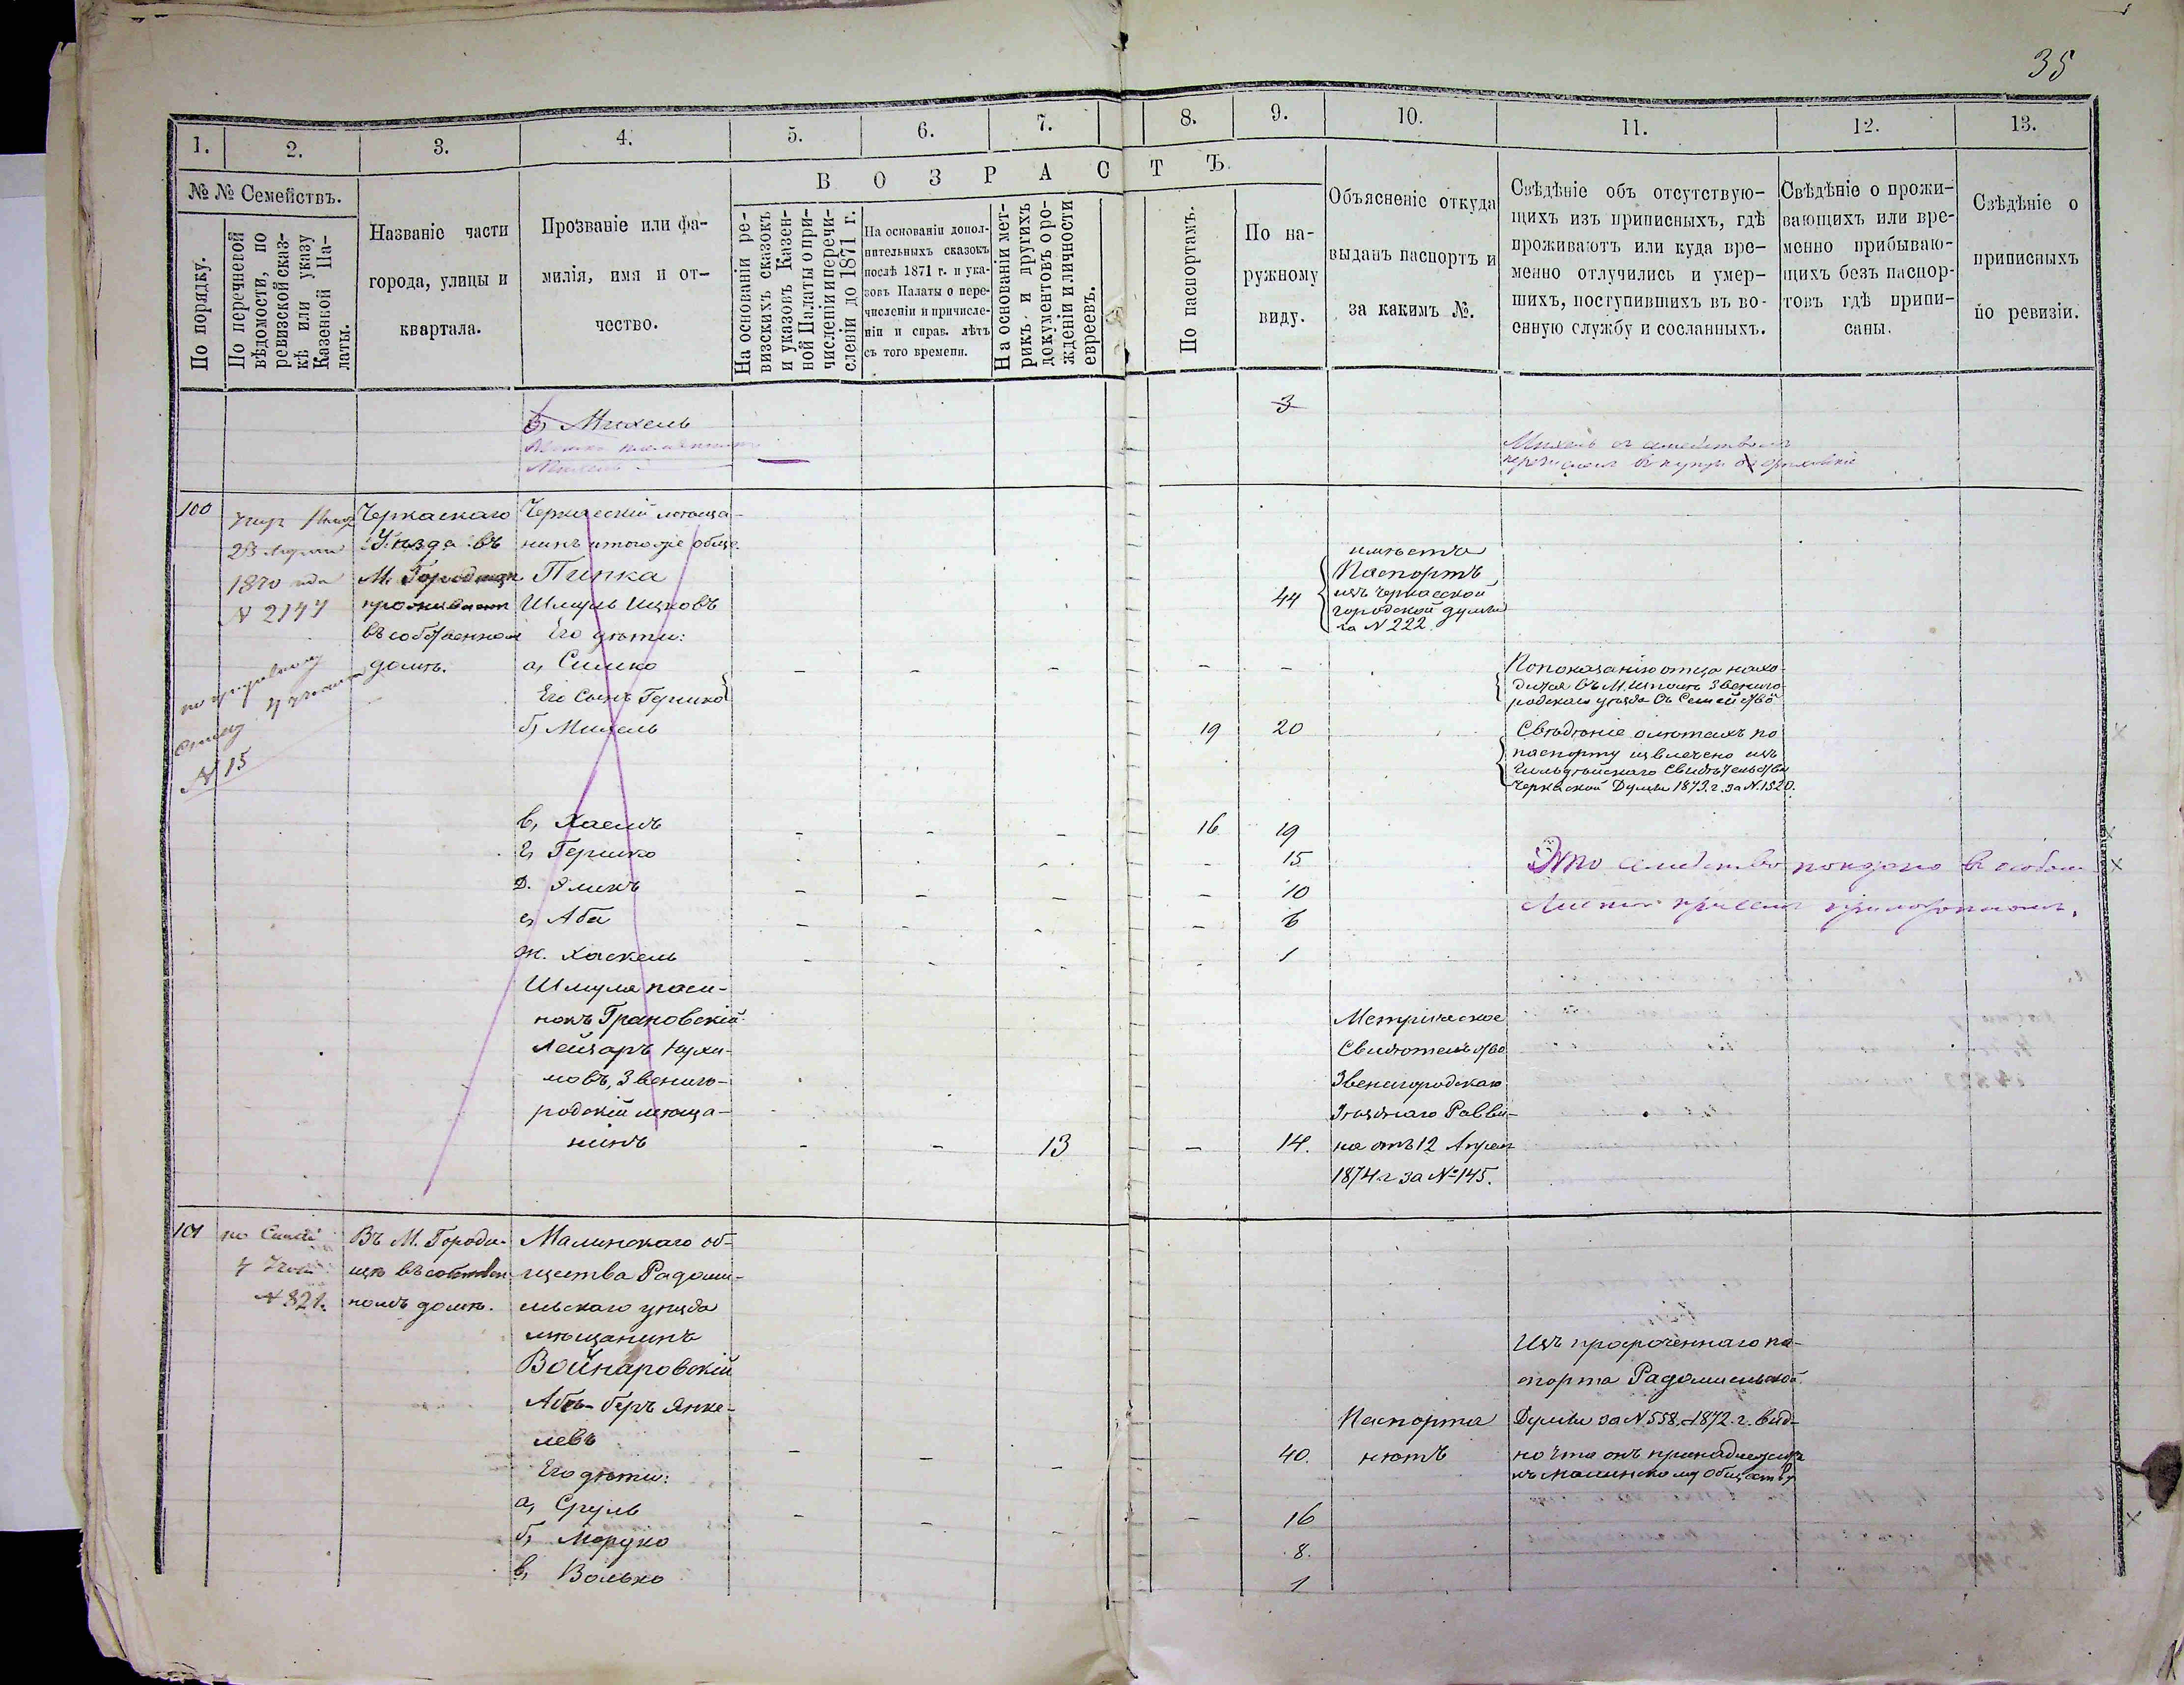 35
1. 2. 3. 4. 5. 6. 7. 8. 9. 10. 11. 12. 13.
№ № Семействъ.
По порядку.
По перечневой
вѣдомости, по
ревизской сказ-
кѣ или указу
Казенной Па-
латы.
Названіе части
города, улицы и
квартала.
Прозваніе или фа-
милія, имя и от-
чество.
ВОЗРАСТЪ
На основаніи ре-
визскихъ сказокъ
и указовъ Казен-
ной Палаты о при-
численіи и перечи-
сленіи до 1871 г.
На основаніи допол-
нительныхъ сказокъ
послѣ 1871 г. и ука-
зовъ Палаты о пере-
численіи и причисле-
ніи и справ. лѣтъ
съ того времени.
На основаніи мет-
рикъ и другихъ
документовъ о ро-
жденіи и личности
евреевъ.
По паспортамъ.
По на-
ружному
виду.
Объясненіе откуда
выданъ паспортъ и
за какимъ №.
Свѣдѣніе объ отсутствую-
щихъ изъ приписныхъ, гдѣ
проживаютъ или куда вре-
менно отлучились и умер-
шихъ, поступившихъ въ во-
енную службу и сосланныхъ.
Свѣдѣніе о прожи-
вающихъ или вре-
менно прибываю-
щихъ безъ паспор-
товъ гдѣ припи-
саны.
Свѣдѣніе о
приписныхъ
по ревизіи.
Михель
3
Михель съ семействомъ
100
23
1870 года
N 2147
N 15
Черкаскаго
Уѣзда въ
М. Городищѣ
проживаетъ
въ собственномъ
домѣ.
Черкаскій мѣща-
нинъ и того же обще.
Пипка
Шмуль Ицковъ
Его дѣти:
44
имѣется
Паспортъ
изъ Черкасской
городской думы
за N 222.
а, Симко
Его Сынъ Гершко
– – – – –
По показанію отца нахо-
дится въ М. Звениго-
родскаго уѣзда съ Семейство
б, Михель
19 20
Свѣдѣніе о лѣтахъ по
паспорту извлечено изъ
Гильдѣйскаго Свидѣтельства
Черкаской Думы 1873. г. за N. 1520.
в, Хаемъ
16 19
г, Гершко
15
Это семейство показано в особом
Д. Эликъ
10
е, Аба
6
ж. Хаскель
1
Шмуля пасы-
нокъ Грановскій
Лейзаръ Нухи-
мовъ, Звениго-
родскій мѣща-
нинъ
13 – 14.
Метрическое
Свидѣтельство
Звенигородскаго
Уѣзднаго Равви-
на отъ 12 Апреля
1874 г за №145.
101
N 321.
Въ М. Городи-
щѣ въ собствен-
номъ домѣ.
Малинскаго об-
щества Радомы-
сльскаго уѣзда
мѣщанинъ
Войнаровскій
Абъ-беръ Янке-
левъ
40.
Паспорта
нѣтъ
Изъ просроченнаго па-
спорта Радомысльской
Думы за N 558. 1872. г. вид-
но что онъ принадлежитъ
къ малинскому обществу
Его дѣти:
а, Сруль
16
б, Мордко
8.
в, Волько
1